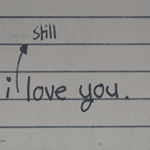 still
i love you.